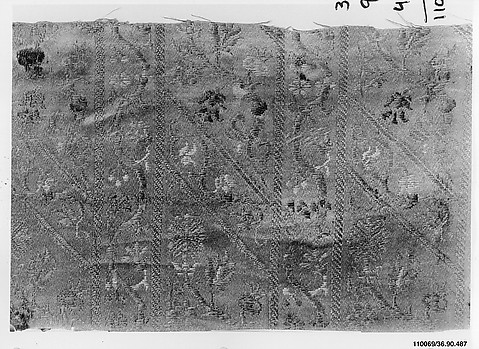 3
9
4
110
110069/36.90.487